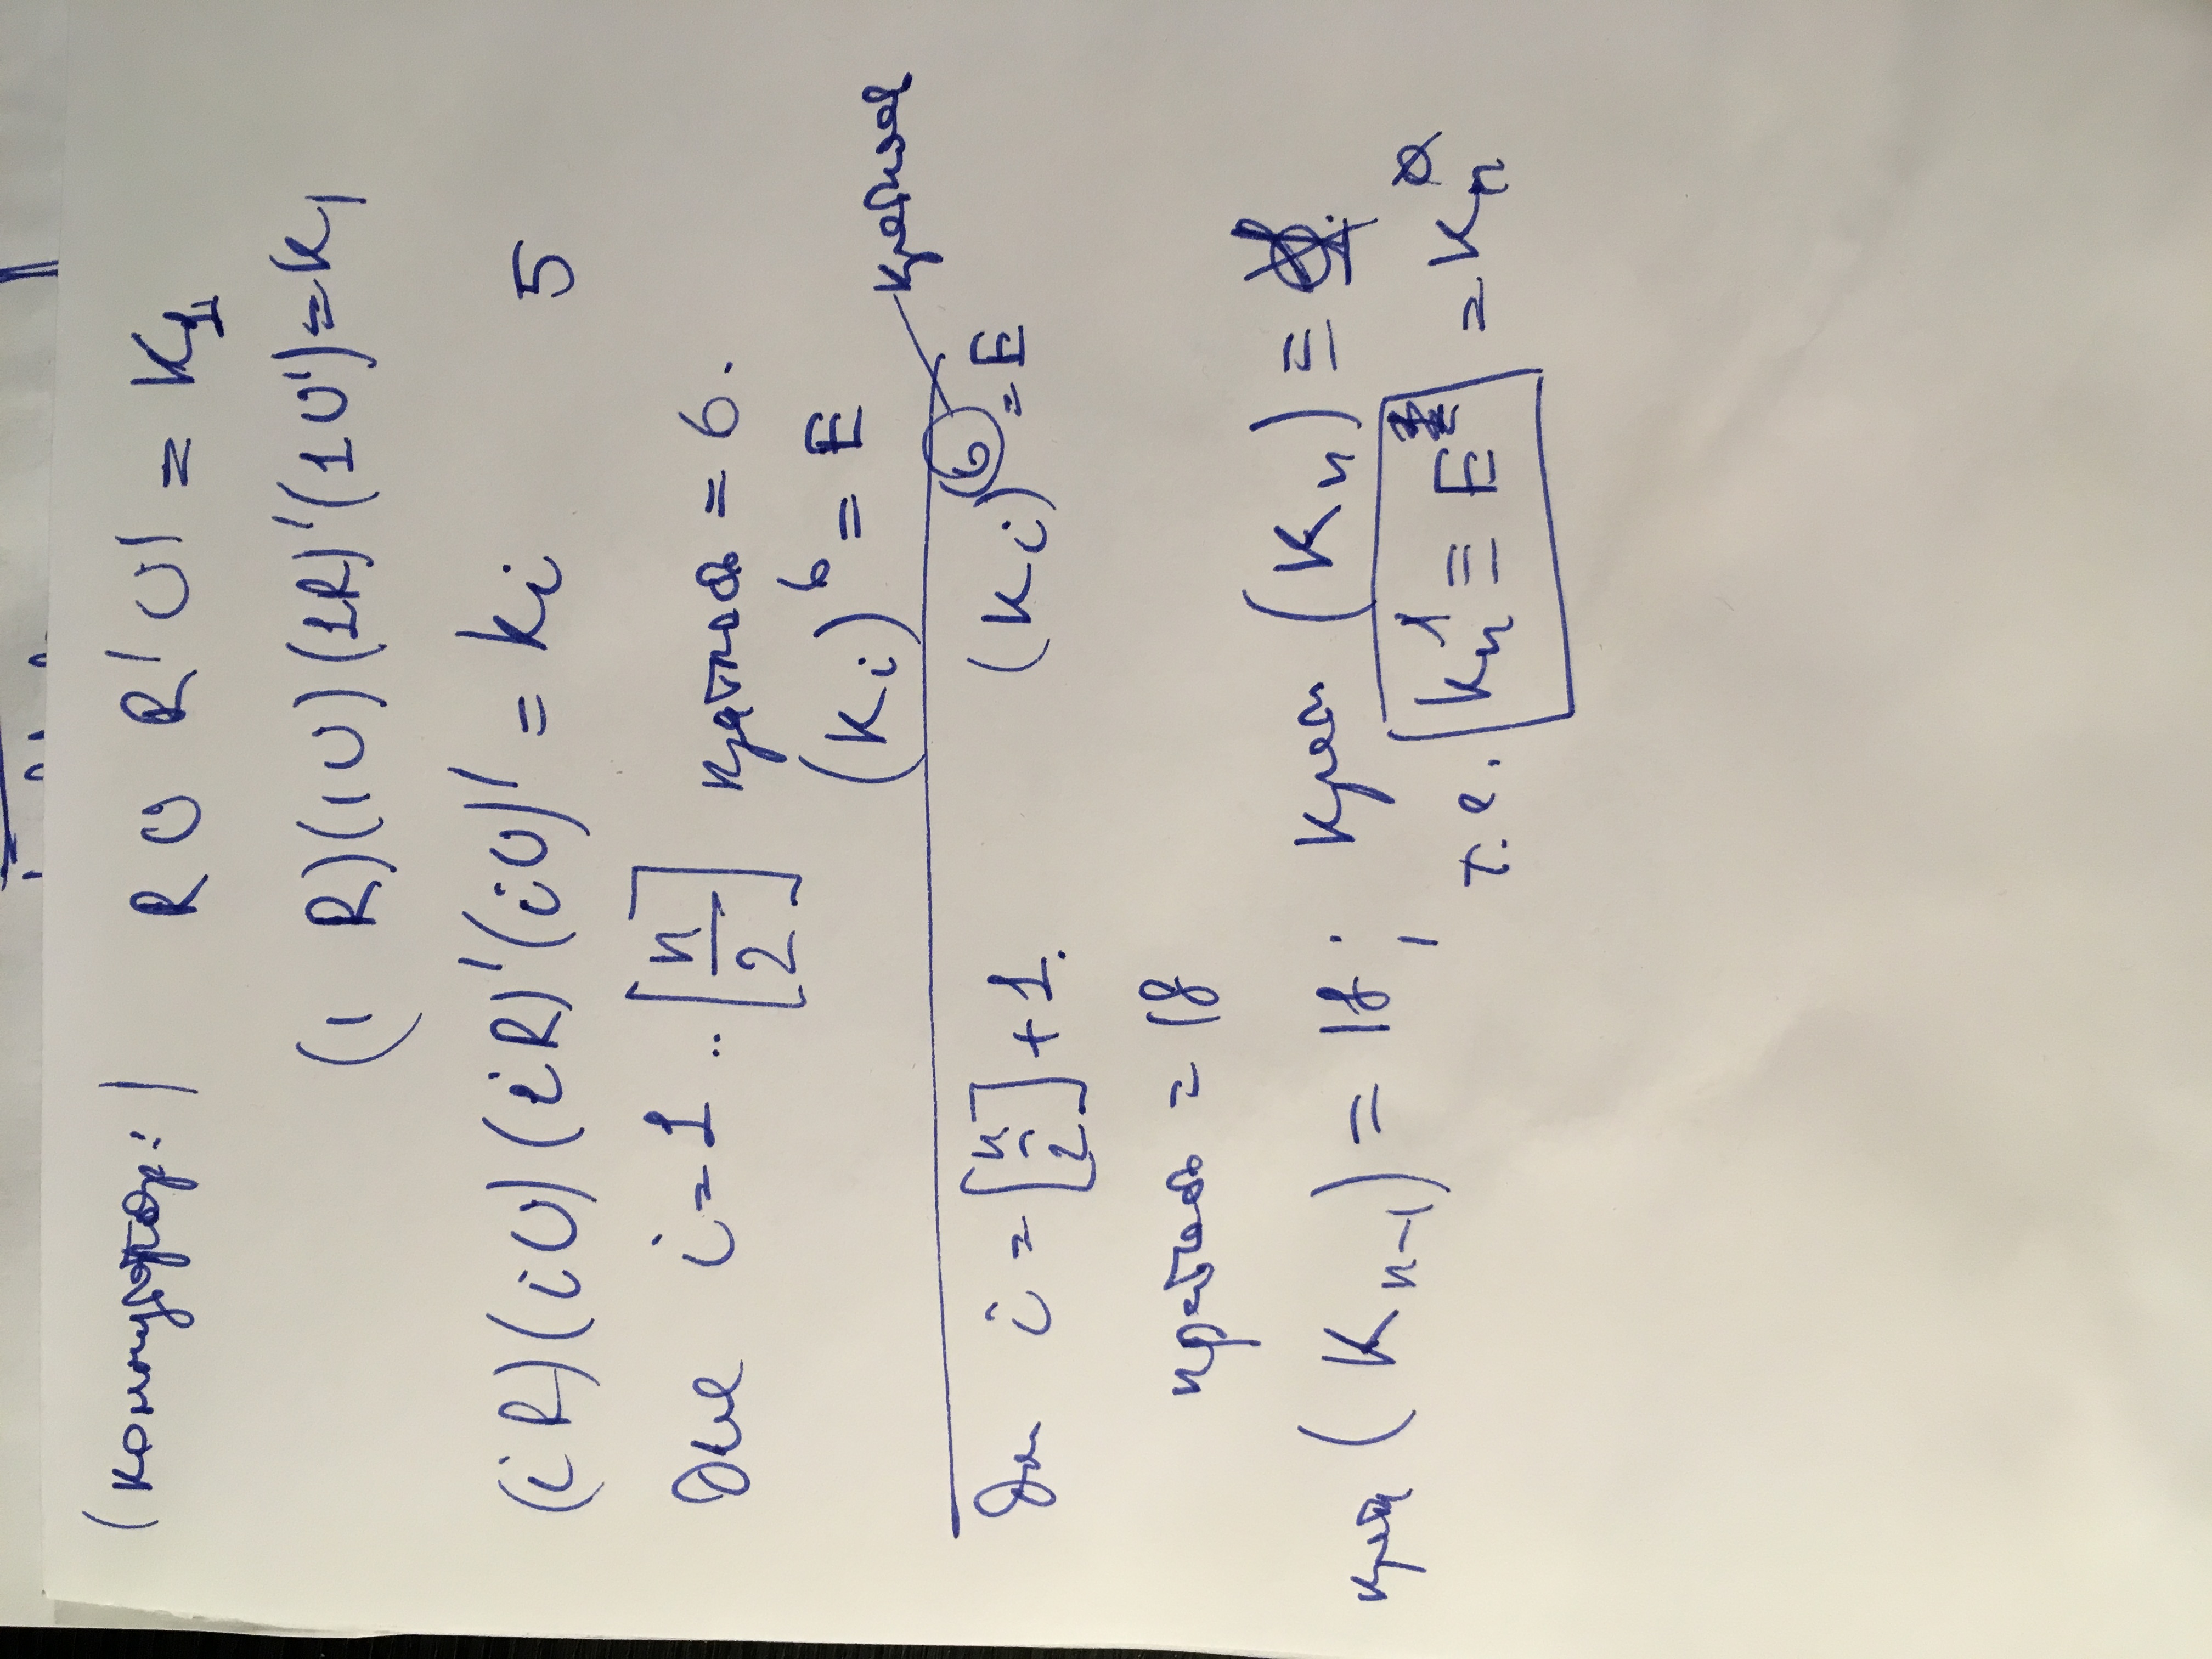 (коммутатор:) R U R' U' = K1
(1 R)(1 U)(1R)'(1 U') = K1
(i R)(i U)(i R)'(i U)' = Ki 5
для i = 1 .. [n/2] кратность = 6.
(Ki)^6 = E
кратность
для i = [n/2] + 1. (Ki)^6 = E
кратность = 18
крат (K n-1) = 18; крат (K n) ≡
т.е. Kn^1 ≡ E = Kn